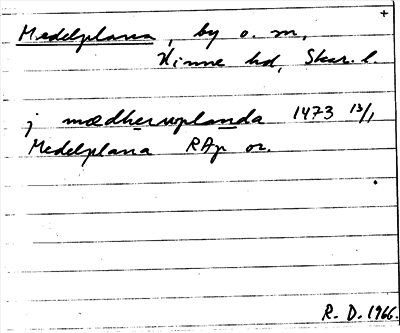 +
Medelplana, by o. sn,
Kinne hd, Skar. l.
j mædheruplanda 1473 13/1
Medelplana RAp or.
R. D. 1966.